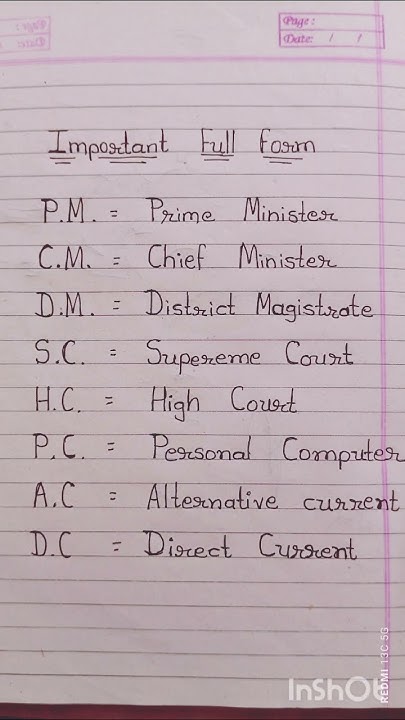 Page:
Date: / /
Important Full Form
P.M. = Prime Minister
C.M. = Chief Minister
D.M. = District Magistrate
S.C. = Supereme Court
H.C. = High Court
P.C. = Personal Computer
A.C = Alternative current
D.C = Direct Current
REDMI 13C 5G
InShOt